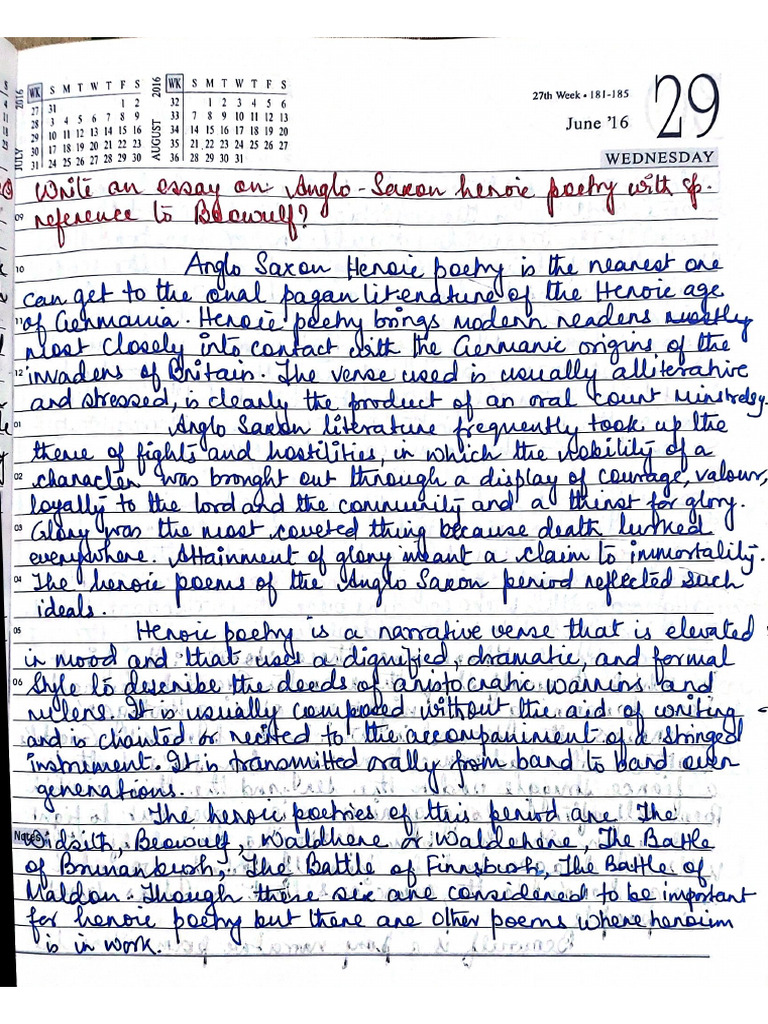 JULY 2016
WK S M T W T F S
27 31 1 2
28 3 4 5 6 7 8 9
29 10 11 12 13 14 15 16
30 17 18 19 20 21 22 23
31 24 25 26 27 28 29 30
AUGUST 2016
WK S M T W T F S
32 1 2 3 4 5 6
33 7 8 9 10 11 12 13
34 14 15 16 17 18 19 20
35 21 22 23 24 25 26 27
36 28 29 30 31
27th Week • 181-185
June '16
29
WEDNESDAY
Write an essay on Anglo-Saxon heroic poetry with sp.
09 reference to Beowulf?
10 Anglo Saxon Heroic poetry is the nearest one
can get to the oral pagan literature of the Heroic age
11 of Germania. Heroic poetry brings modern readers mostly
most closely into contact with the Germanic origins of the
12 invaders of Britain. The verse used is usually alliterative
and stressed, is clearly the product of an oral court minstrelsy.
01 Anglo Saxon literature frequently took up the
theme of fights and hostilities, in which the nobility of a
02 character was brought out through a display of courage, valour,
loyally to the lord and the community and a thirst for glory.
03 Glory was the most coveted thing because death lurked
everywhere. Attainment of glory meant a claim to immortality.
04 The heroic poems of the Anglo Saxon period reflected such
ideals.
05 Heroic poetry is a narrative verse that is elevated
in mood and that uses a dignified, dramatic, and formal
06 style to describe the deeds of aristocratic warrins and
rulers. It is usually composed without the aid of writing
and is chanted or recited to the accompaniment of a stringed
instrument. It is transmitted orally from band to band over
generations.
The heroic poetries of this period are The
Notes Widsith, Beowulf, Waldhere or Waldehere, The Battle
of Brunanbush, The Battle of Finnsbush, The Battle of
Maldon. Though these six are considered to be important
for heroic poetry but there are other poems where heroism
is in work.